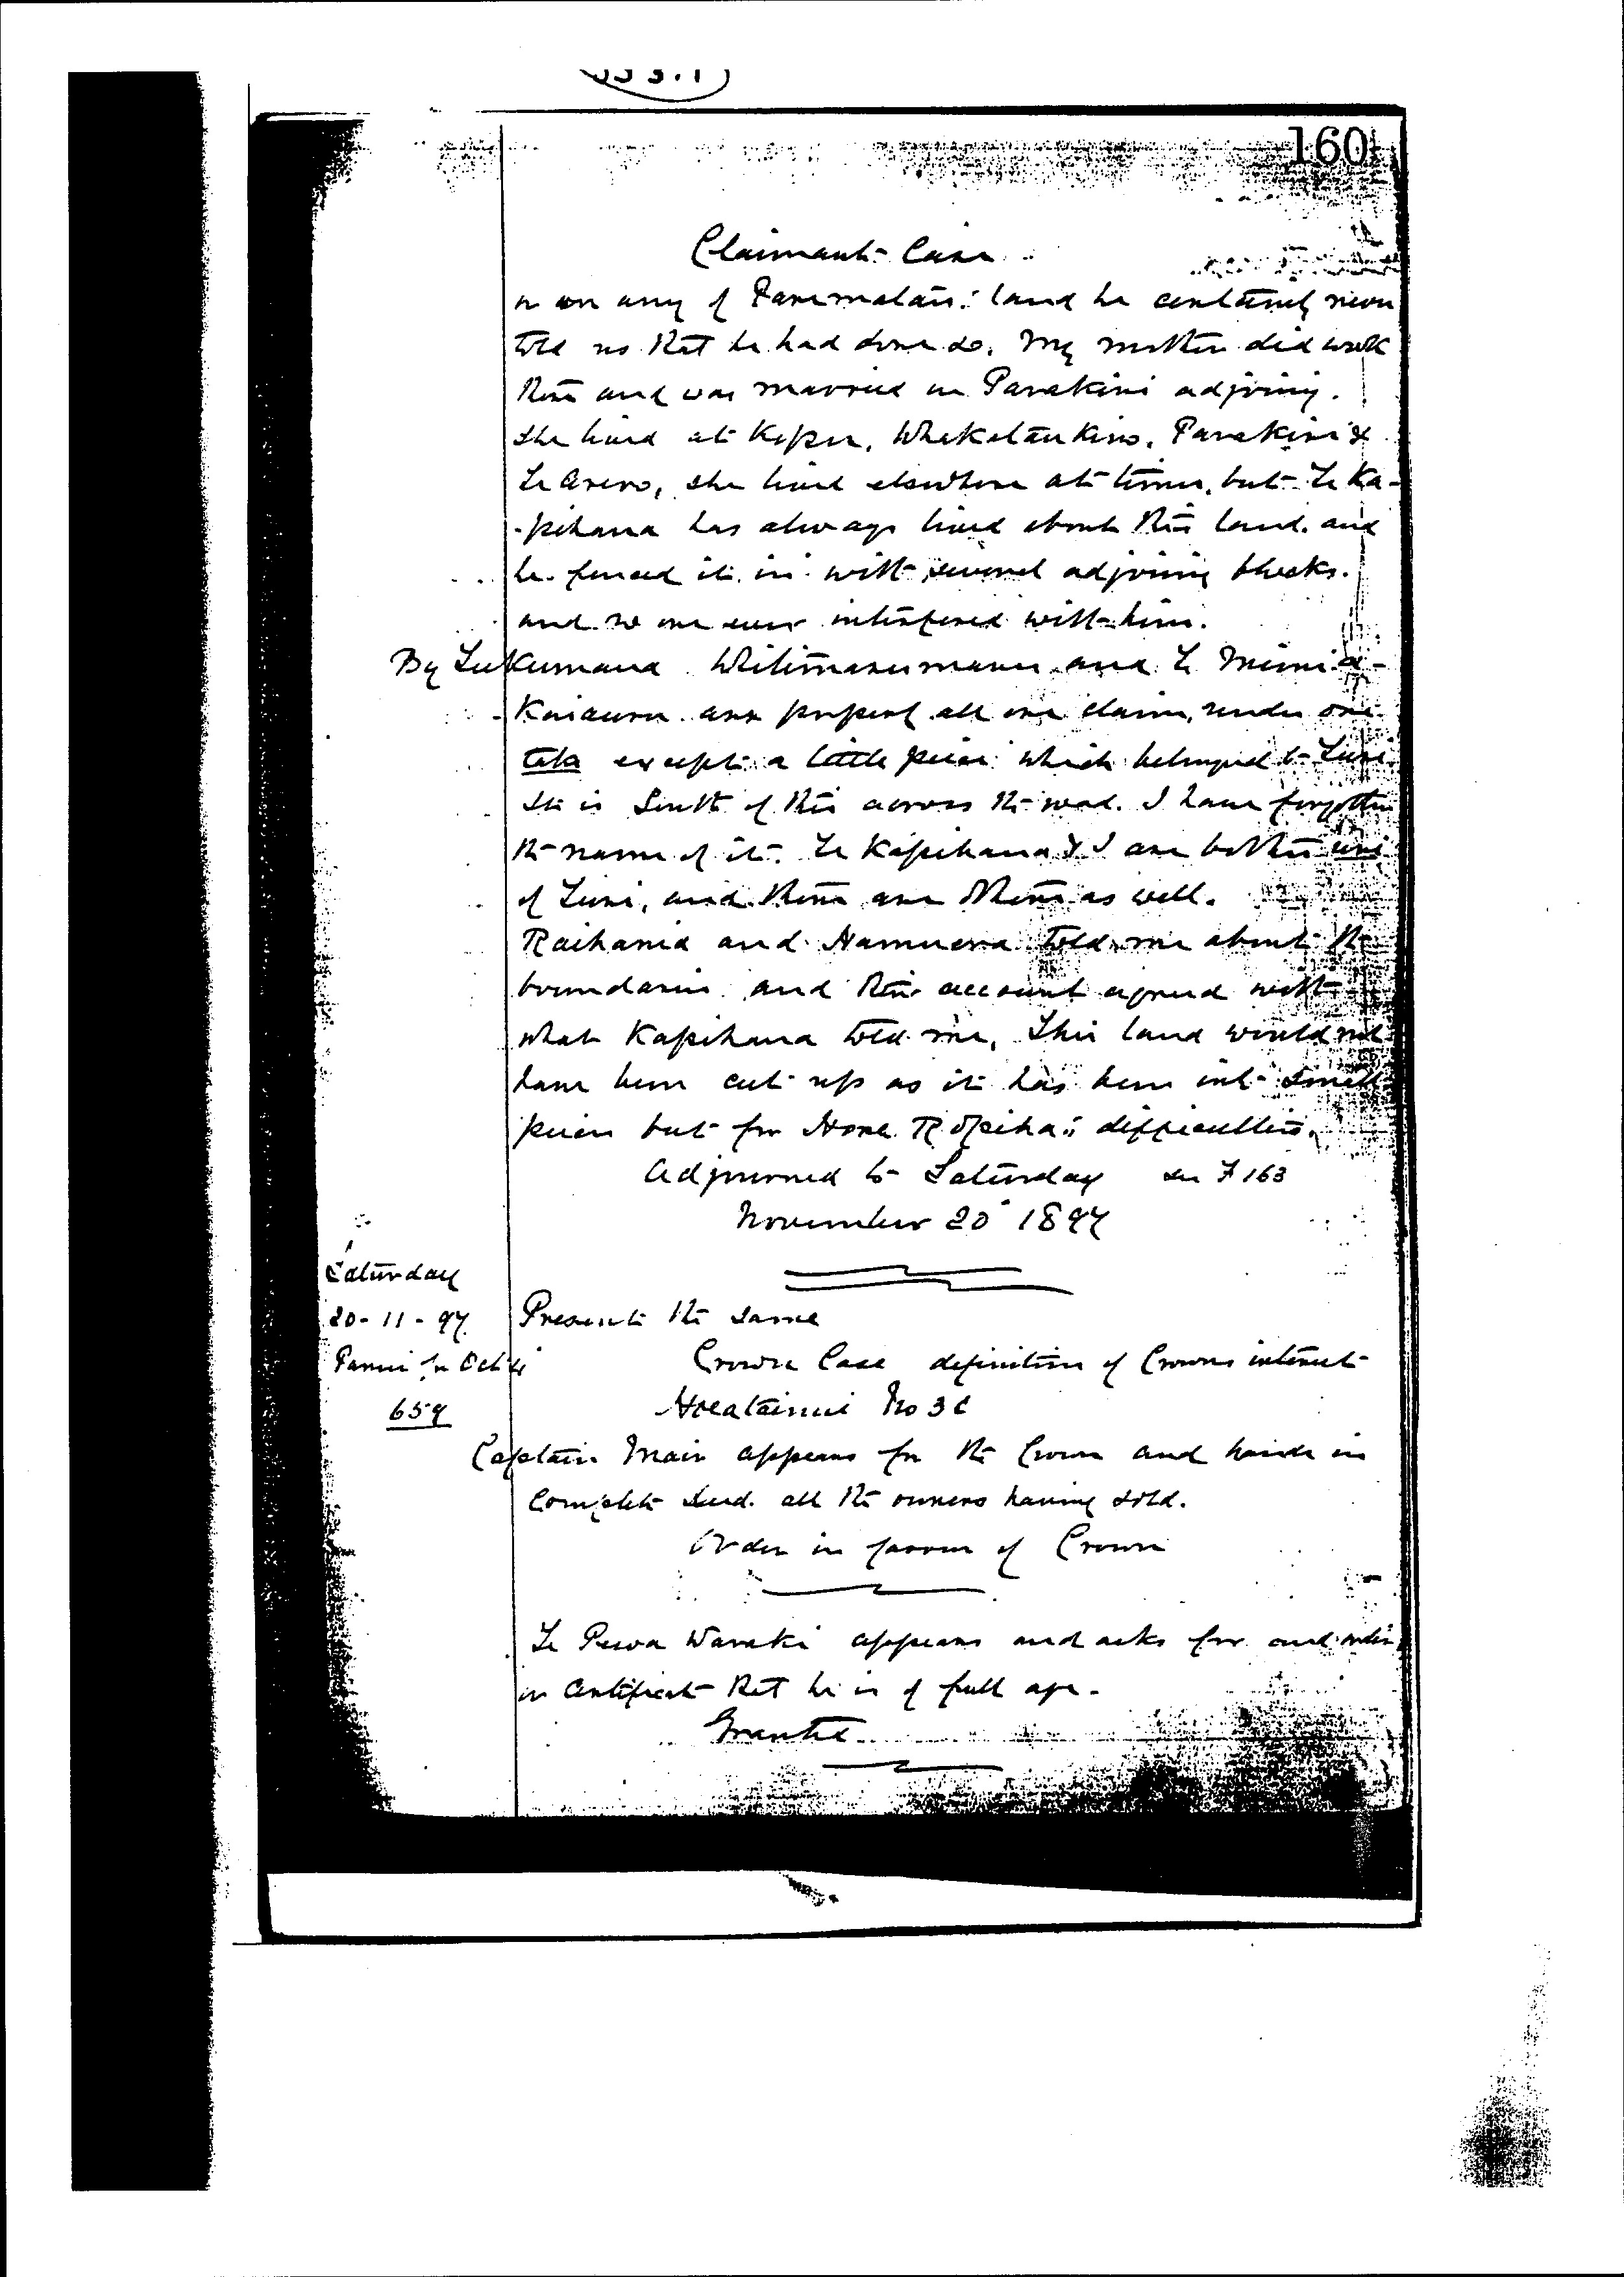 160
Claimants Case
or on any of Parematai's land he certainly never
told us that he had done so. My mother did work
there and was married on Parakiri adjoining.
She lived at Kopu, Parakiri &
Te Arero, she lived elsewhere at times, but Te Ka-
-pihana has always lived about this land. and
he fenced it in with several adjoining blocks.
and no one ever interfered with him.
By Tukumana and Te Mimi o
are properly all one claim, under one
take except a little piece which belonged to Turi
It is South of this across the road. I have forgotten
the name of it. Te Kapihana & I are both uri
of Turi, and there are others as well.
Raihania and Hamuera told me about the
boundaries and their account agreed with
what Kapihana told me, This land would not
have been cut up as it has been into small
pieces but for Hone Ropiha's difficulties.
Adjourned to Saturday see F 163
November 20 1897
Saturday
20-11-97 Present the same
Panui for Crown Case definition of Crowns interest
659 Hoeatainui No 3C
Captain Mair appears for the Crown and hands in
Complete deed. all the owners having sold.
Order in favour of Crown
Te Pewa Waraki appears and asks for
or certificate that he is of full age.
Granted